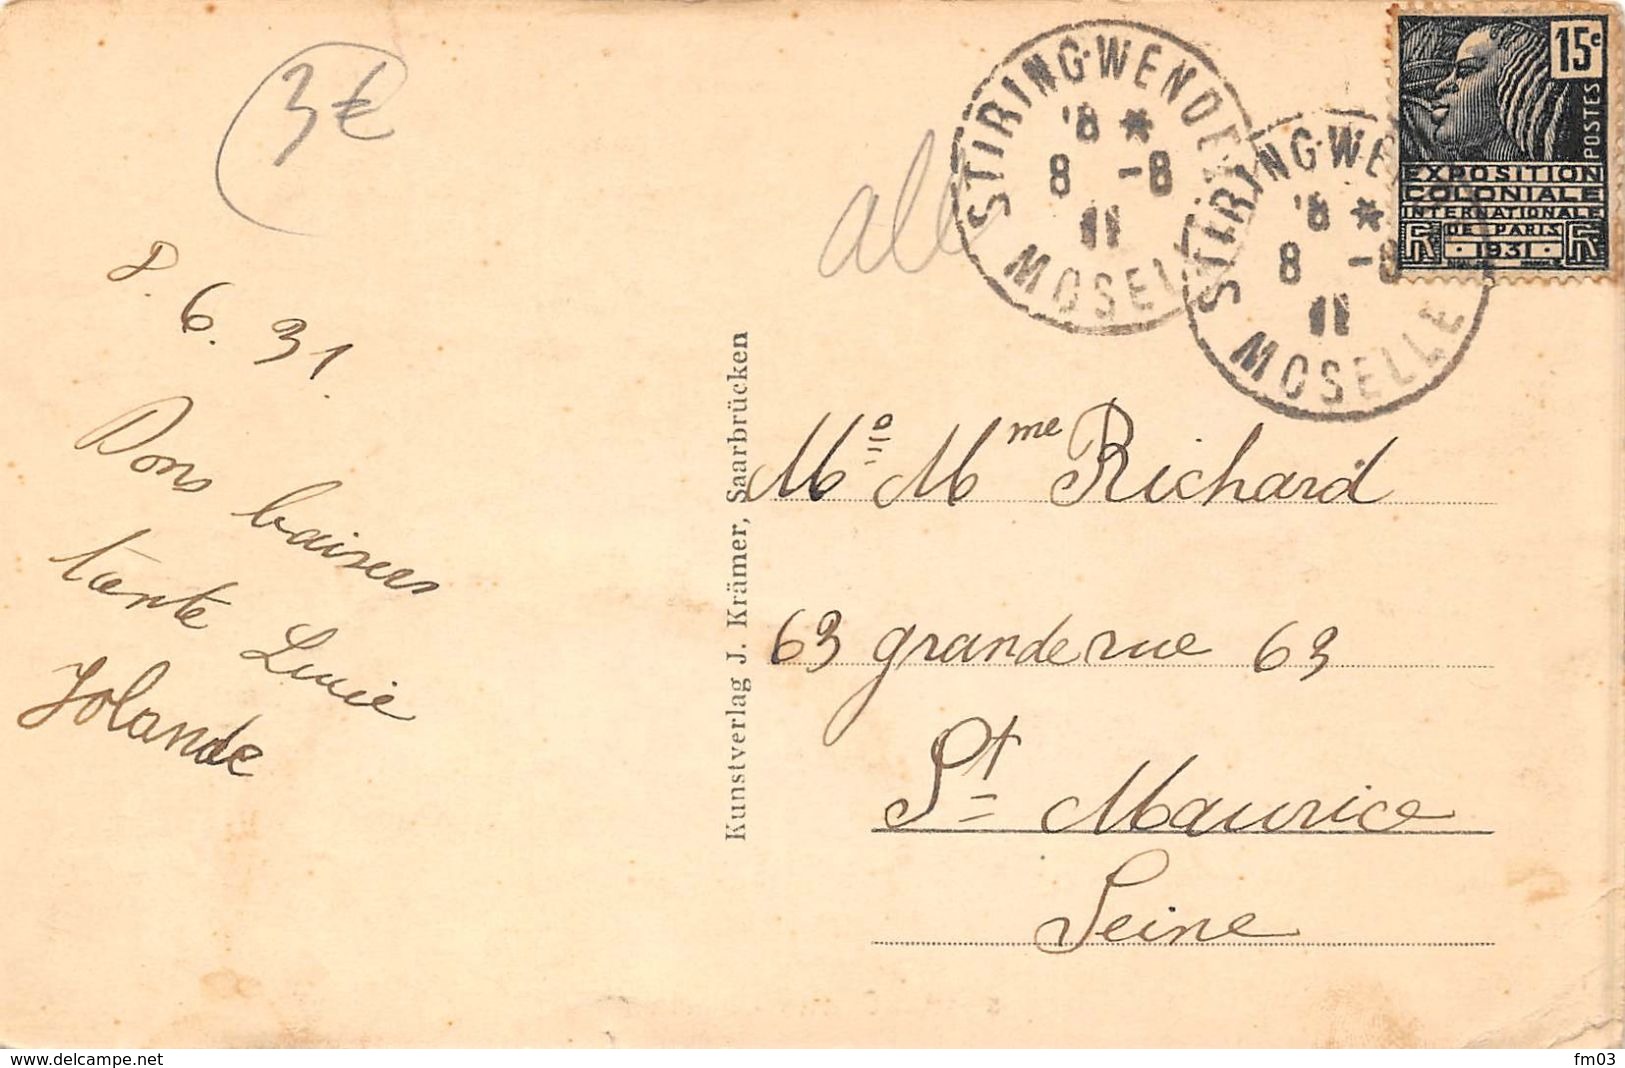 3€
all
8.6.31.
Bons baisers
tante Lucie
Yolande
Kunstverlag J. Krämer, Saarbrücken
STIRING-WENDEL
'8 *
8 -8
MOSELLE
STIRING-WE
'8 *
8 -8
MOSELLE
15c
POSTES
EXPOSITION
COLONIALE
INTERNATIONALE
DE PARIS
RF · 1931 · RF
Mr Mme Richard
63 grande rue 63
St Maurice
Seine
www.delcampe.net
fm03